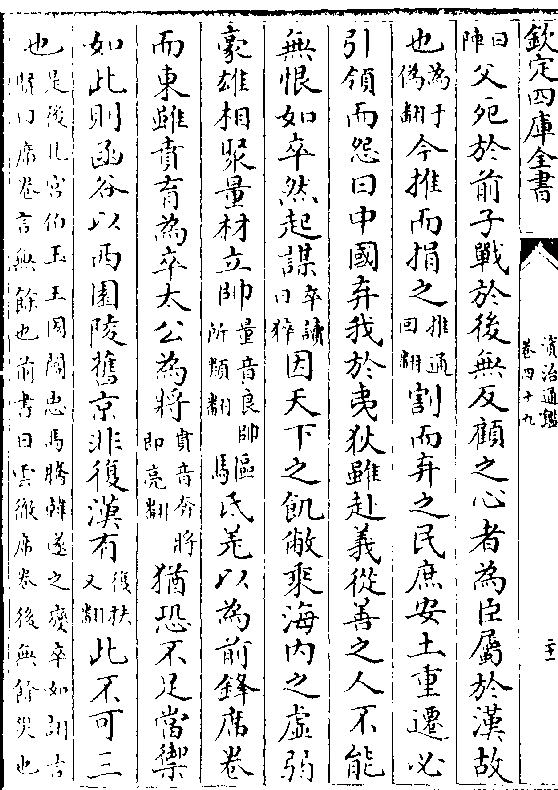 欽定四庫全書
資治通鑑
卷四十九
二十一
曰陣父死於前子戰於後無反顧之心者為臣屬於漢故
也為于偽翻今推而捐之推通回翻割而弃之民庶安土重遷必
引領而怨曰中國弃我於夷狄雖赴義從善之人不能
無恨如卒然起謀卒讀曰猝因天下之飢敝乘海內之虛弱
豪雄相聚量材立帥量音良帥所類翻驅氐羌以為前鋒席卷
而東雖賁育為卒太公為將賁音奔將即亮翻猶恐不足當禦
如此則函谷以西園陵舊京非復漢有復扶又翻此不可三
也是後北宮伯玉王國閻忠馬騰韓遂之變卒如詡言賢曰席卷言無餘也前書曰雲徹席卷後無餘災也